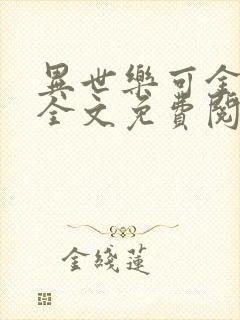 異世樂可全
全文免費閱
金綫蓮